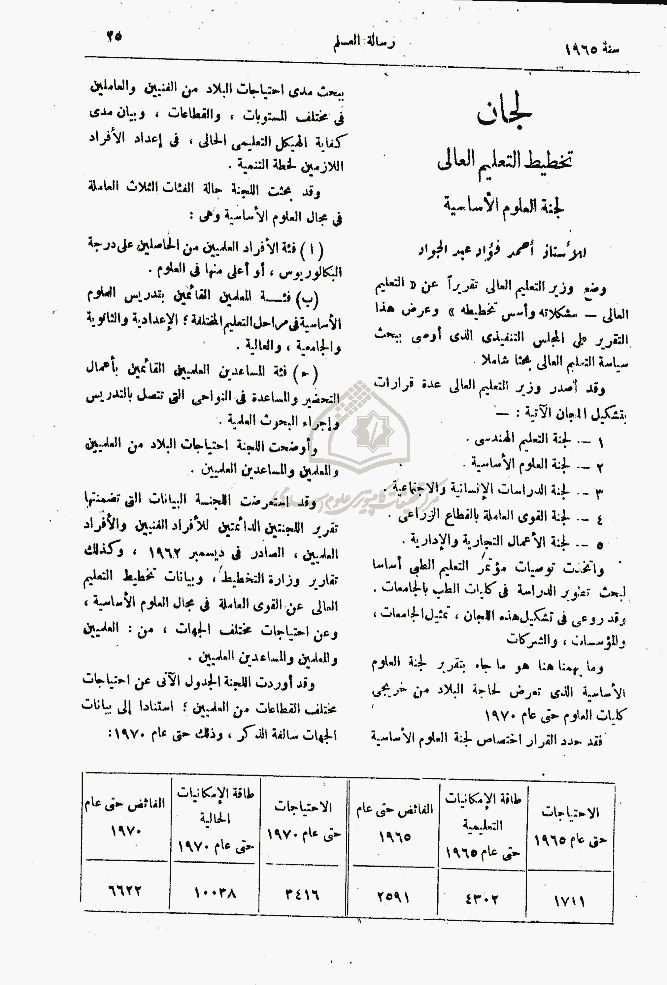 سنة ١٩٦٥
رسالة العلم
٢٥
لجان
تخطيط التعليم العالى
لجنة العلوم الأساسية
للأستاذ أحمد فؤاد عبد الجواد
وضع وزير التعليم العالى تقريراً عن « التعليم
العالى — مشكلاته وأسس تخطيطه » وعرض هذا
التقرير على المجلس التنفيذى الذى أوصى ببحث
سياسة التعليم العالى بحثا شاملا .
وقد أصدر وزير التعليم العالى عدة قرارات
بتشكيل اللجان الآتية : —
١ — لجنة التعليم الهندسى .
٢ — لجنة العلوم الأساسية .
٣ — لجنة الدراسات الإنسانية والاجتماعية .
٤ — لجنة القوى العاملة بالقطاع الزراعى .
٥ — لجنة الأعمال التجارية والإدارية .
واتخذت توصيات مؤتمر التعليم الطبى أساسا
لبحث تطوير الدراسة فى كليات الطب بالجامعات .
وقد روعى فى تشكيل هذه اللجان ، تمثيل الجامعات ،
والمؤسسات ، والشركات
وما يهمنا هنا هو ما جاء بتقرير لجنة العلوم
الأساسية الذى تعرض لحاجة البلاد من خريجى
كليات العلوم حتى عام ١٩٧٠
فقد حدد القرار اختصاص لجنة العلوم الأساسية
ببحث مدى احتياجات البلاد من الفنيين والعاملين
فى مختلف المستويات ، والقطاعات ، وبيان مدى
كفاية الهيكل التعليمى الحالى ، فى إعداد الأفراد
اللازمين لخطة التنمية .
وقد بحثت اللجنة حالة الفئات الثلاث العاملة
فى مجال العلوم الأساسية وهى :
( ا ) فئة الأفراد العلميين من الحاصلين على درجة
البكالوريوس ، أو أعلى منها فى العلوم .
(ب) فئـــة المعلمين القائمين بتدريس العلوم
الأساسية فى مراحل التعليم المختلفة ؛ الإعدادية والثانوية
والجامعية ، والعالية .
( ح ) فئة المساعدين العلميين القائمين بأعمال
التحضير والمساعدة فى النواحى التى تتصل بالتدريس
وإجراء البحوث العلمية .
وأوضحت اللجنة احتياجات البلاد من العلميين
والمعلمين والمساعدين العلميين .
وقد استعرضت اللجنــة البيانات التى تضمنتها
تقرير اللجنتين الدائمتين للأفراد الفنيين والأفراد
العلميين ، الصادر فى ديسمبر ١٩٦٢ ، وكذلك
تقارير وزارة التخطيط ، وبيانات تخطيط التعليم
العالى عن القوى العاملة فى مجال العلوم الأساسية ،
وعن احتياجات مختلف الجهات ، من : العلميين
والمعلمين والمساعدين العلميين .
وقد أوردت اللجنة الجدول الآتى عن احتياجات
مختلف القطاعات من العلميين ؛ استنادا إلى بيانات
الجهات سالفة الذكر ، وذلك حتى عام ١٩٧٠ :
الاحتياجات
حتى عام ١٩٦٥
طاقة الإمكانيات
التعليمية
حتى عام ١٩٦٥
الفائض حتى عام
١٩٦٥
الاحتياجات
حتى عام ١٩٧٠
طاقة الإمكانيات
الحالية
حتى عام ١٩٧٠
الفائض حتى عام
١٩٧٠
١٧١١
٤٣٠٢
٢٥٩١
٣٤١٦
١٠٠٣٨
٦٦٢٢